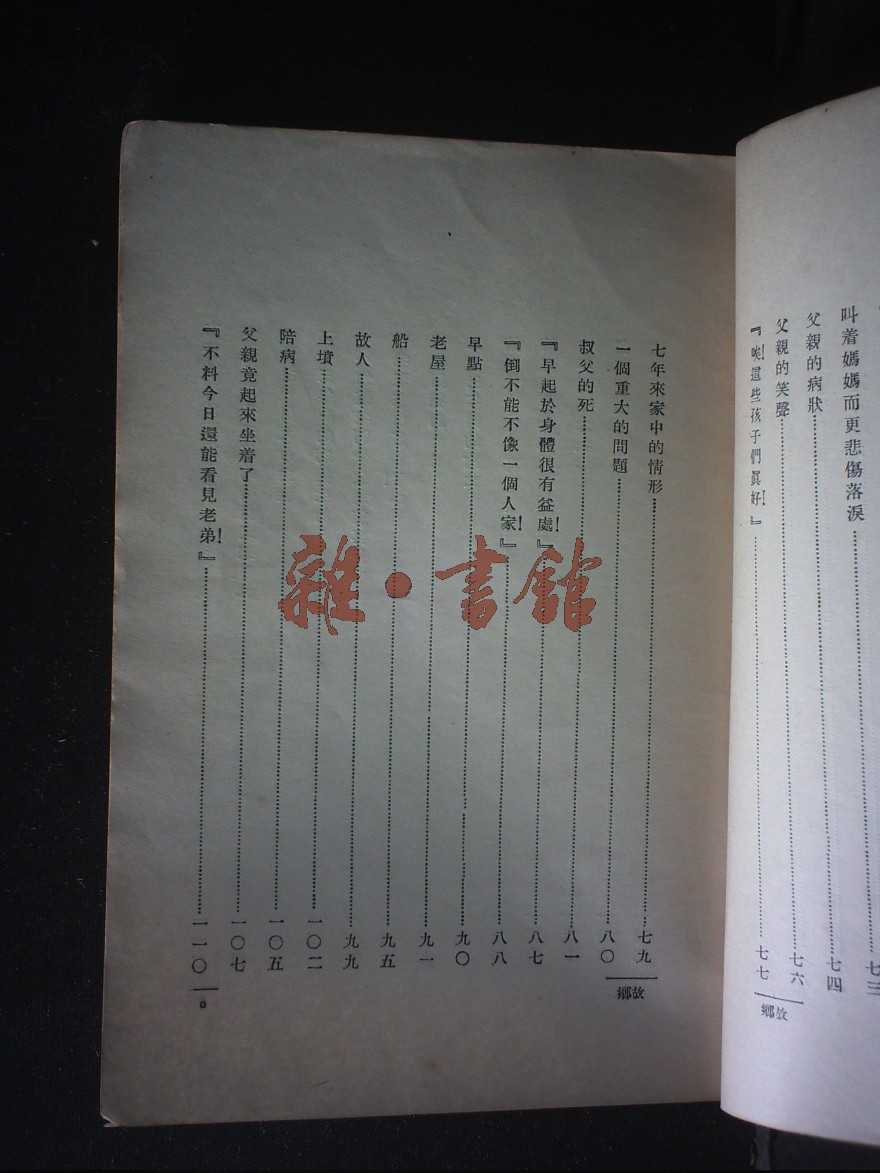 叫着媽媽而更悲傷落淚……七三
父親的病狀……七四
父親的笑聲……七六
『唉！這些孩子們眞好！』……七七
故鄉
七年來家中的情形……七九
一個重大的問題……八〇
叔父的死……八一
『早起於身體很有益處！』……八七
『倒不能不像一個人家！』……八八
早點……九〇
老屋……九一
船……九五
故人……九九
上墳……一〇二
陪病……一〇五
父親竟起來坐着了……一〇七
『不料今日還能看見老弟！』……一一〇—。
故鄉
雜·書館